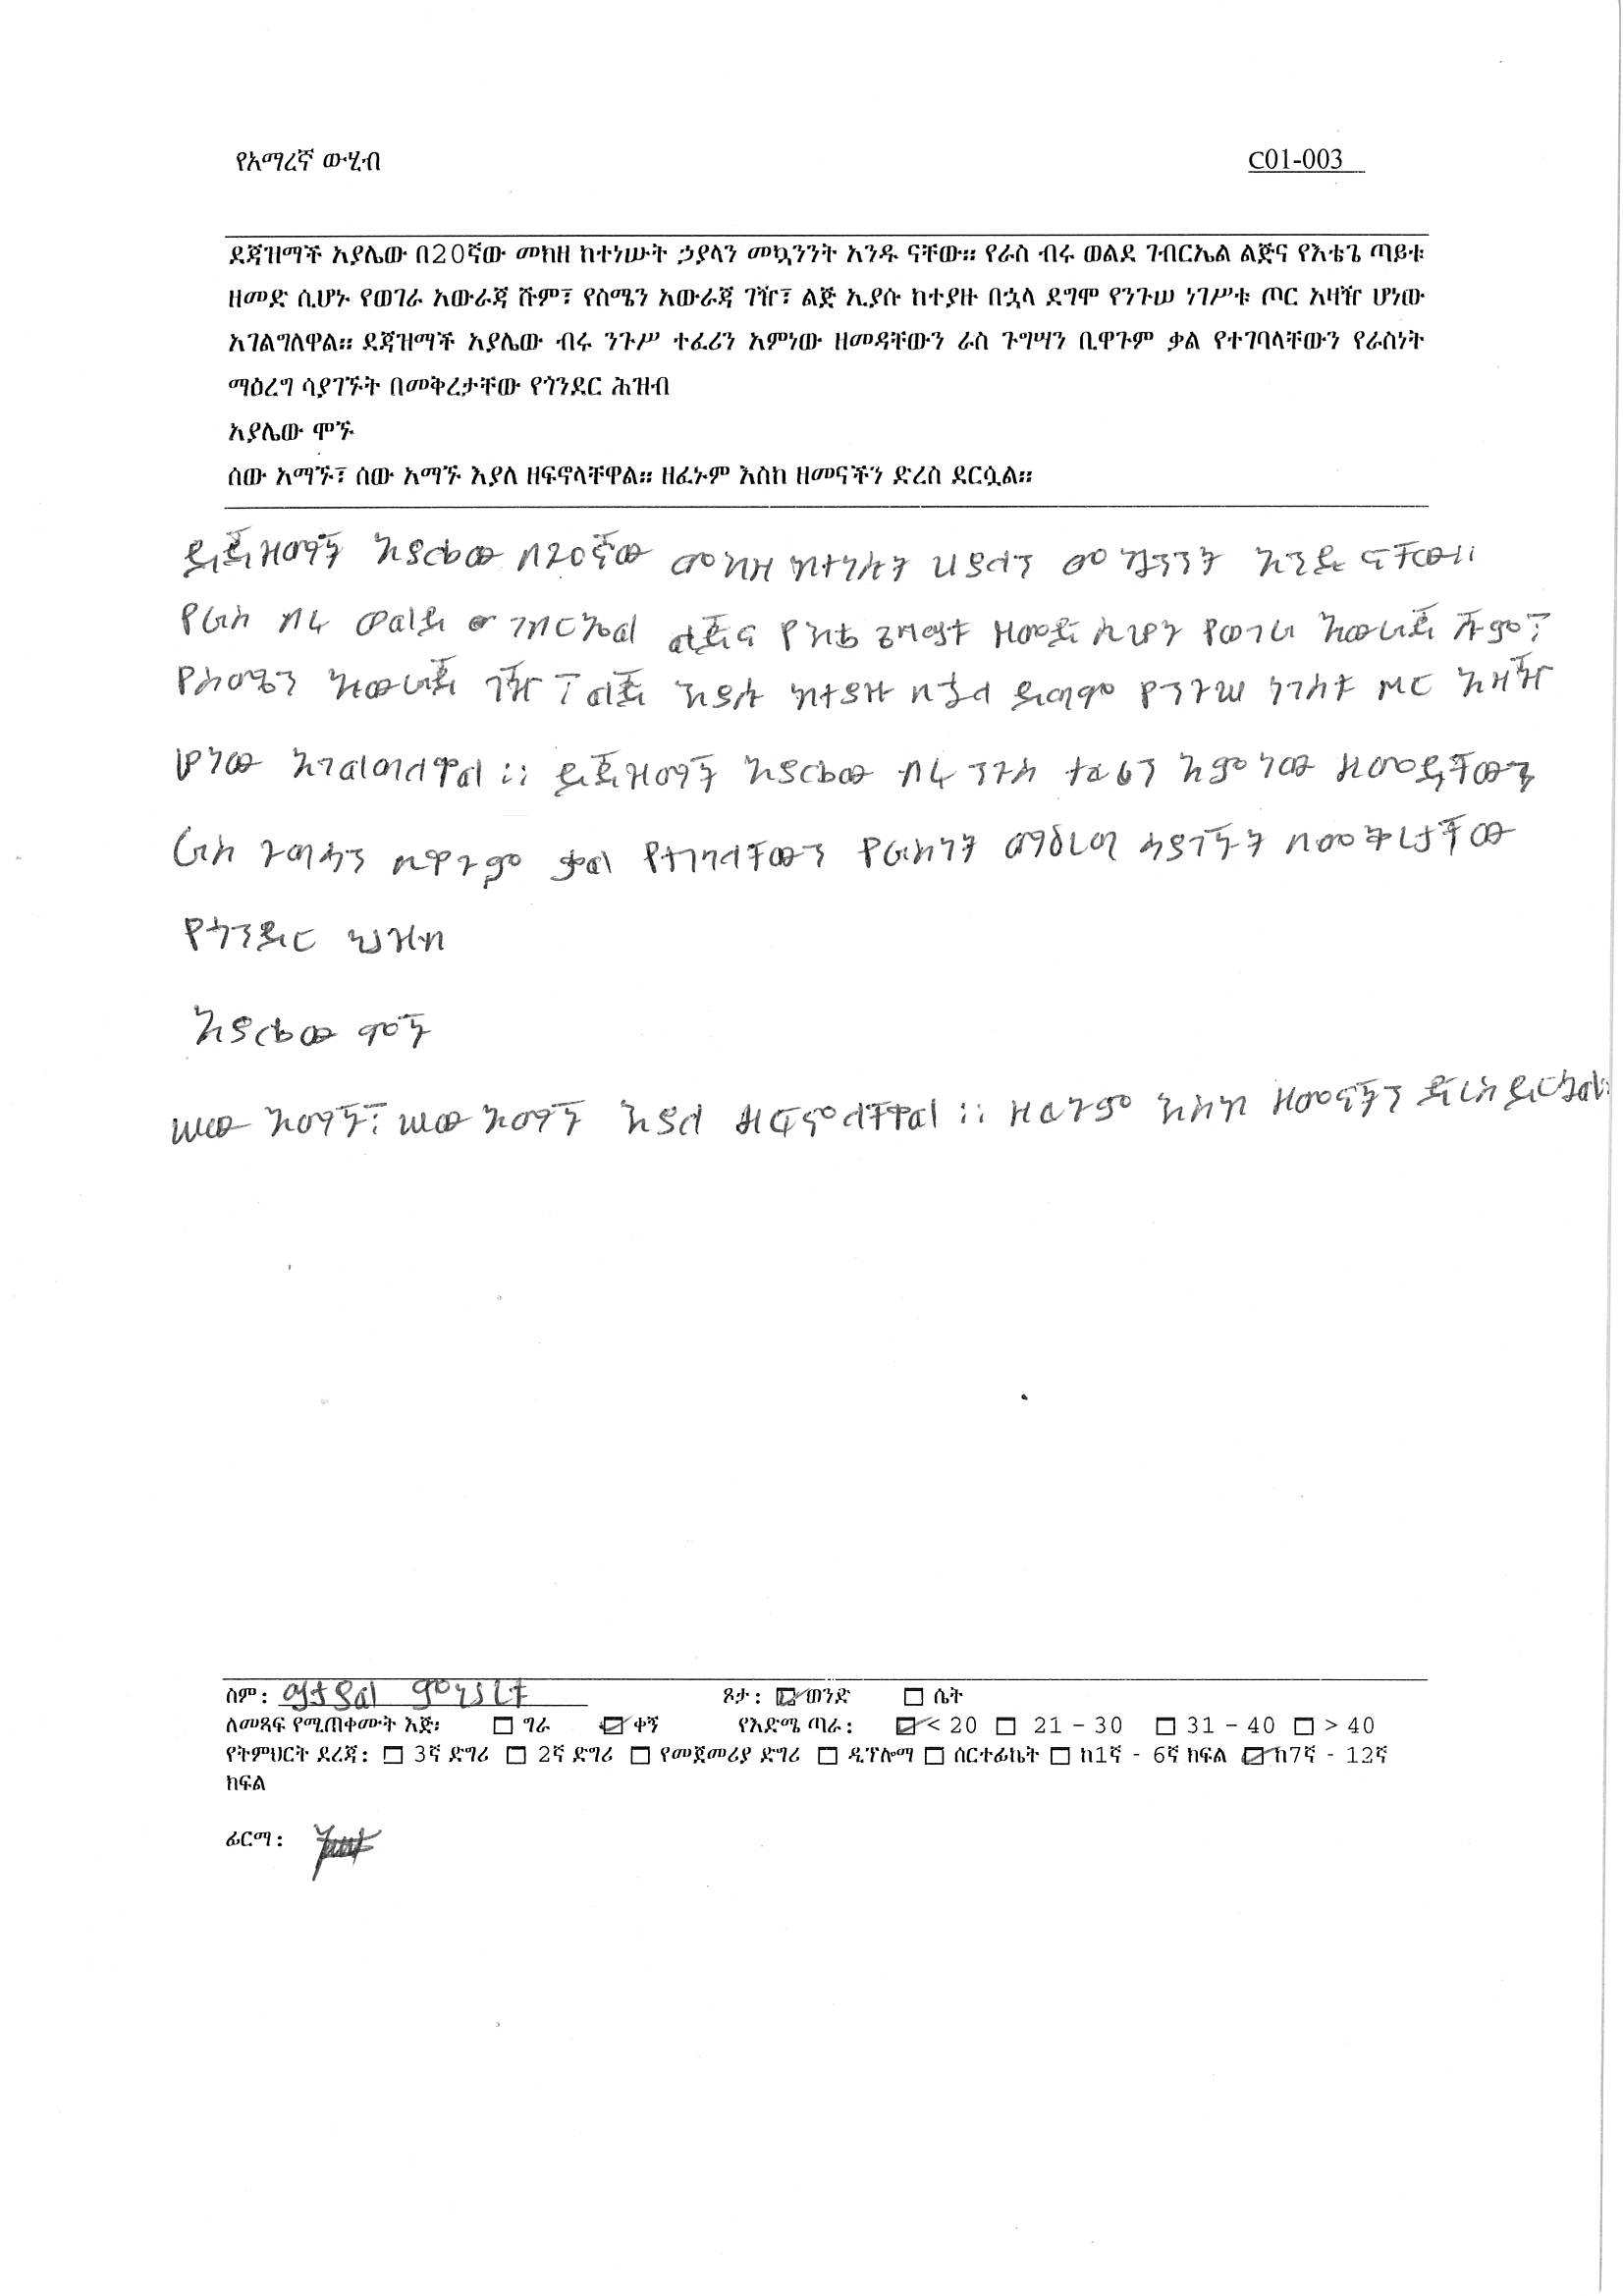 የአማረኛ ውሂብ C01-003
ደጃዝማች አያሌው በ20ኛው መክዘ ከተነሡት ኃያላን መኳንንት አንዱ ናቸው። የራስ ብሩ ወልደ ገብርኤል ልጅና የእቴጌ ጣይቱ
ዘመድ ሲሆኑ የወገራ አውራጃ ሹም፣ የስሜን አውራጃ ገዥ፣ ልጅ ኢያሱ ከተያዙ በኋላ ደግሞ የንጉሠ ነገሥቱ ጦር አዛዥ ሆነው
አገልግለዋል። ደጃዝማች አያሌው ብሩ ንጉሥ ተፈሪን አምነው ዘመዳቸውን ራስ ጉግሣን ቢዋጉም ቃል የተገባላቸውን የራስነት
ማዕረግ ሳያገኙት በመቅረታቸው የጎንደር ሕዝብ
አያሌው ሞኙ
ሰው አማኙ፣ ሰው አማኙ እያለ ዘፍኖላቸዋል። ዘፈኑም እስከ ዘመናችን ድረስ ደርሷል።
ደጃዝማች አያሌው በ20ኛው መክዘ ከተነሱት ሀያላን መኳንንት አንዱ ናቸው።
የራስ ብሩ ወልደ ገብርኤል ልጅና የእቴ ዘመድ ሲሆን የወገራ አውራጃ ሹም፣
የሰሜን አውራጃ ገዥ ፣ ልጅ እያሱ ከተያዙ በኋላ ደግሞ የንጉሠ ነገስቱ ጦር አዛዥ
ሆነው አገልግለዋል ። ደጃዝማች አያሌው ብሩ ንጉስ ተፈሪን አምነው ዘመዳቸውን
ራስ ጉግሳን ቢዋጉም ቃል የተገባላቸውን የራስነት ማዕረግ ሳያገኙት በመቅረታቸው
የጎንደር ህዝብ
አያሌው ሞኙ
ሠው አማኙ፣ ሠው አማኙ እያለ ዘፍኖላቸዋል ። ዘፈኑም እስከ ዘመናችን ድረስ ደርሷል።
ስም: ጾታ: ወንድ ሴት
ለመጻፍ የሚጠቀሙት እጅ፡ ግራ ቀኝ የእድሜ ጣራ: < 20 21 - 30 31 - 40 > 40
የትምህርት ደረጃ: 3ኛ ድግሪ 2ኛ ድግሪ የመጀመሪያ ድግሪ ዲፕሎማ ሰርተፊኬት ከ1ኛ - 6ኛ ክፍል ከ7ኛ - 12ኛ
ክፍል
ፊርማ: